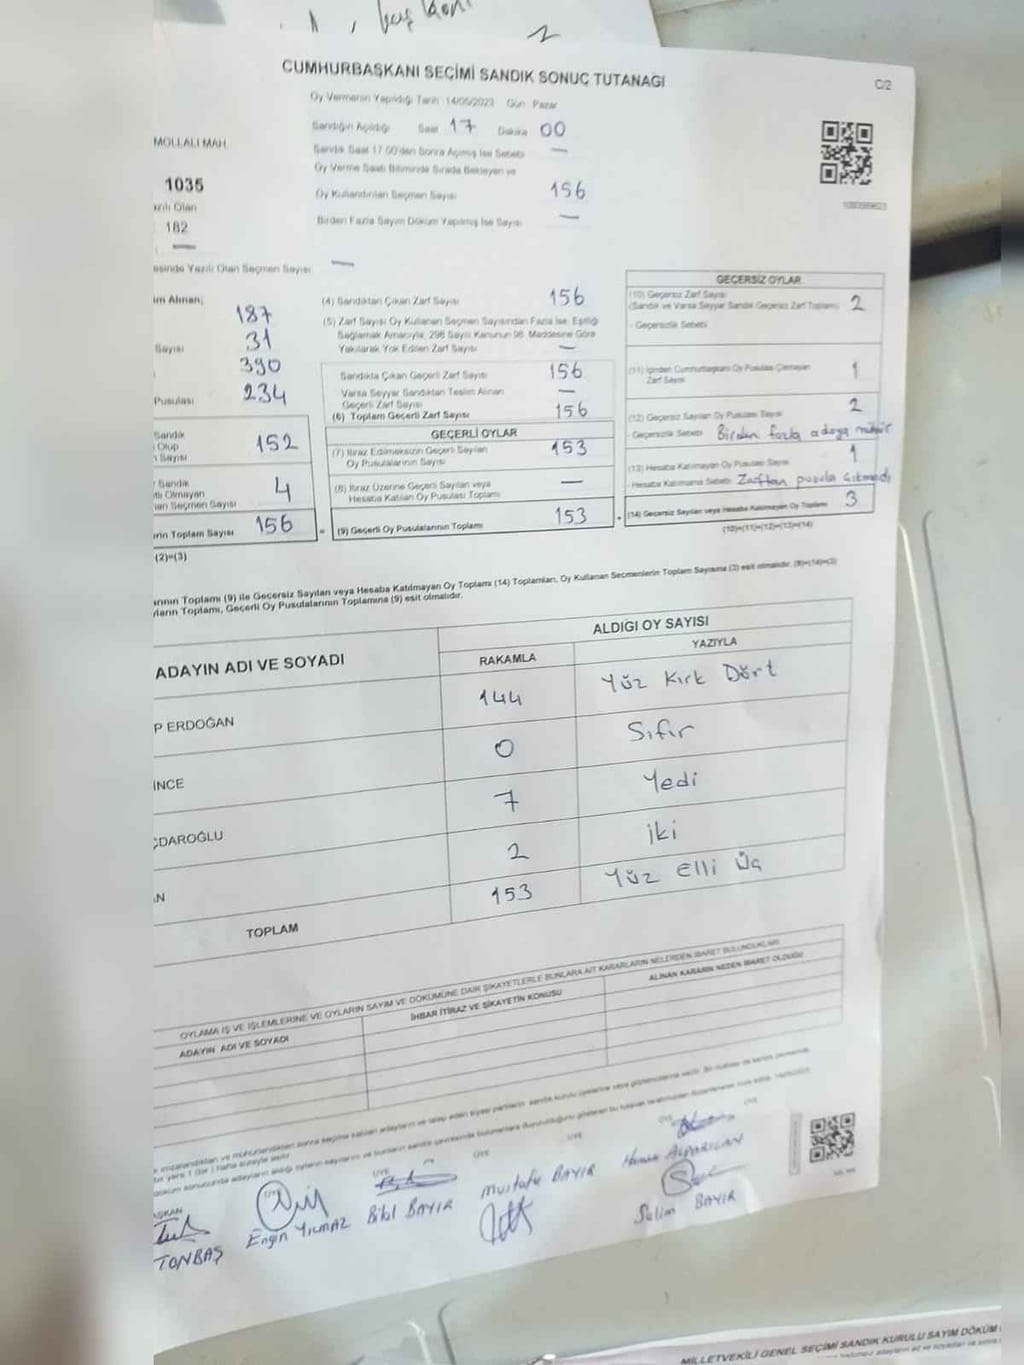 CUMHURBAŞKANI SEÇİMİ SANDIK SONUÇ TUTANAĞI
C/2
Oy Vermenin Yapıldığı Tarih 14/05/2023 Gün Pazar
Sandığın Açıldığı Saat 17 Dakika 00
MOLLALI MAH.
Sandık Saat 17.00'den Sonra Açılmış İse Sebebi —
Oy Verme Saati Bitiminde Sırada Bekleyen ve
1035
Oy Kullandırılan Seçmen Sayısı 156
zılı Olan
182
Birden Fazla Sayım Döküm Yapılmış İse Sayısı —
—
esinde Yazılı Olan Seçmen Sayısı —
im Alınan;
187
Sayısı 31
390
Pusulası 234
Sandık
Olup
Sayısı 152
Sandık
tlı Olmayan 4
an Seçmen Sayısı
erin Toplam Sayısı 156
(2)=(3)
(4) Sandıktan Çıkan Zarf Sayısı 156
(5) Zarf Sayısı Oy Kullanan Seçmen Sayısından Fazla İse, Eşitliği
Sağlamak Amacıyla, 298 Sayılı Kanunun 98. Maddesine Göre
Yakılarak Yok Edilen Zarf Sayısı —
Sandıkta Çıkan Geçerli Zarf Sayısı 156
Varsa Seyyar Sandıktan Teslim Alınan
Geçerli Zarf Sayısı —
(6) Toplam Geçerli Zarf Sayısı 156
GEÇERLİ OYLAR
(7) İtiraz Edilmeksizin Geçerli Sayılan
Oy Pusulalarının Sayısı 153
(8) İtiraz Üzerine Geçerli Sayılan veya
Hesaba Katılan Oy Pusulası Toplamı —
= (9) Geçerli Oy Pusulalarının Toplamı 153
GEÇERSİZ OYLAR
(10) Geçersiz Zarf Sayısı
(Sandık ve Varsa Seyyar Sandık Geçersiz Zarf Toplamı) 2
- Geçersizlik Sebebi
(11) İçinden Cumhurbaşkanı Oy Pusulası Çıkmayan
Zarf Sayısı 1
(12) Geçersiz Sayılan Oy Pusulası Sayısı 2
- Geçersizlik Sebebi Birden fazla adaya mühür
(13) Hesaba Katılmayan Oy Pusulası Sayısı 1
- Hesaba Katılmama Sebebi Zarftan pusula çıkmadı
+ (14) Geçersiz Sayılan veya Hesaba Katılmayan Oy Toplamı 3
(10)+(11)+(12)+(13)=(14)
arının Toplamı (9) ile Geçersiz Sayılan veya Hesaba Katılmayan Oy Toplamı (14) Toplamları, Oy Kullanan Seçmenlerin Toplam Sayısına (3) eşit olmalıdır. (9)+(14)=(3)
yların Toplamı, Geçerli Oy Pusulalarının Toplamına (9) eşit olmalıdır.
ADAYIN ADI VE SOYADI
ALDIĞI OY SAYISI
RAKAMLA YAZIYLA
P ERDOĞAN 144 Yüz Kırk Dört
İNCE 0 Sıfır
ÇDAROĞLU 7 Yedi
AN 2 İki
TOPLAM 153 Yüz Elli Üç
OYLAMA İŞ VE İŞLEMLERİNE VE OYLARIN SAYIM VE DÖKÜMÜNE DAİR ŞİKAYETLERLE BUNLARA AİT KARARLARIN NELERDEN İBARET BULUNDUKLARI
ADAYIN ADI VE SOYADI
İHBAR İTİRAZ VE ŞİKAYETİN KONUSU
ALINAN KARARIN NEDEN İBARET OLDUĞU
AŞKAN ÜYE ÜYE ÜYE ÜYE ÜYE
TONBAŞ
Engin YILMAZ
Bilal BAYIR
Mustafa BAYIR
Hasan ALPARSLAN
Selim BAYIR
MİLLETVEKİLİ GENEL SEÇİMİ SANDIK KURULU SAYIM DÖKÜM